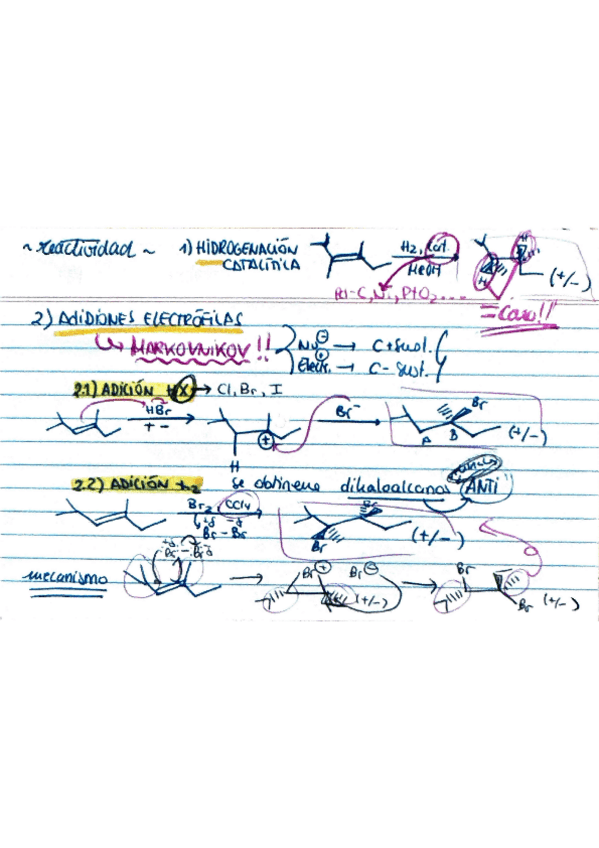 ~ reactividad ~ 1) HIDROGENACIÓN CATALÍTICA H2, Cat. MeOH (+/-)
H H
Pd-C, Ni, PtO2 ... = Cara!!
2) ADIDIONES ELECTRÓFILAS
↳ MARKOVNIKOV!! Nu⊖ → C+sust.
Electr.⊕ → C- sust.
2.1) ADICIÓN HX → Cl, Br, I
HBr + - ⊕ Br⁻ Br A B (+/-)
H
2.2) ADICIÓN X2 se obtinene dihaloalcanos ANTI
Br2, CCl4 Br (+/-)
+δ -δ
Br - Br Br
+δ -δ
Br - Br
mecanismo → Br⊕ Br⊖ (+/-) → Br Br (+/-)